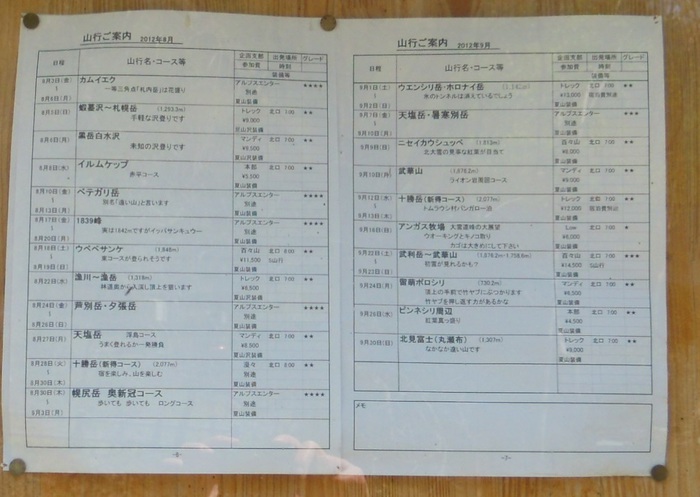 山行ご案内 2012年8月
日程 山行名・コース等 企画支部 出発場所 グレード
参加費 時刻
装備等
8月3日(金) カムイエク アルプスエンター ★★★★
一等三角点「札内岳」は花盛り 別途
8月6日(月) 夏山装備
8月5日(日) 蝦蟇沢〜札幌岳 (1,293.3m) トレック 北口 7:00 ★★
手軽な沢登りです ¥9,300
夏山沢装備
8月6日(月) 黒岳白水沢 マンディ 北口 7:00 ★★
未知の沢登りです ¥9,500
夏山沢装備
8月8日(水) イルムケップ 本部 北口 7:00 ★★
赤平コース ¥5,500
夏山装備
8月10日(金) ペテガリ岳 アルプスエンター ★★★★
別名「遠い山」と言います 別途
8月13日(月) 夏山装備
8月17日(金) 1839峰 アルプスエンター ★★★★
実は1842mですがイッパサンキュウー 別途
8月20日(月) 夏山装備
8月18日(土) ウペペサンケ (1,848m) 百々山 北口 6:00 ★★
東コースが登られそうです ¥11,500 5山行
8月19日(日) 夏山装備
8月22日(水) 漁川〜漁岳 (1,318m) トレック 北口 7:00 ★★
林道脇から入渓し頂上を狙います ¥8,500
夏山沢装備
8月24日(金) 芦別岳・夕張岳 アルプスエンター ★★★★
別途
8月26日(日) 夏山装備
8月27日(月) 天塩岳 渓鳥コース マンディ 北口 7:00 ★★
うまく登れるか一発勝負 ¥8,500
夏山沢装備
8月28日(火) 十勝岳(新得コース) (2,077m) 北口 6:00 ★★
宿を楽しみ、山を楽しむ 別途
8月30日(木) 夏山装備
8月30日(木) 幌尻岳 奥新冠コース アルプスエンター ★★★★
歩いても 歩いても ロングコース 別途
9月3日(月) 夏山装備
山行ご案内 2012年9月
日程 山行名・コース等 企画支部 出発場所 グレード
参加費 時刻
装備等
9月1日(土) ウエンシリ岳・ホロナイ岳 トレック 北口 7:00 ★★
氷のトンネルは消えているでしょう ¥13,000 宿泊費別途
9月2日(日) 夏山装備
9月7日(金) 天塩岳・暑寒別岳 アルプスエンター ★★★
別途
9月10日(月) 夏山装備
9月9日(日) ニセイカウシュッペ (1,883m) 百々山 北口 7:00 ★★
北大雪の見事な紅葉が目当て
夏山装備
9月10日(月) 武華山 (1,876.2m) マンディ 北口 7:00 ★★
ライオン岩周回コース ¥9,000
夏山装備
9月12日(水) 十勝岳(新得コース) (2,077m) トレック 北口 7:00 ★★
トムラウシ村バンガロー泊 ¥12,000 宿泊費別途
9月13日(木) 夏山装備
9月16日(日) アンガス牧場 大雪連峰の大展望 Low 北口 7:00 ★
ウオーキングとキノコ取り ¥6,000
カゴは大きめにして下さい 夏山装備
9月22日(土) 武利岳〜武華山 (1,876.2m・1,758.8m) 百々山 北口 7:00 ★★★
初雪が見れるかも？ ¥14,500 5山行
9月23日(日) 夏山装備
9月24日(月) 留萠ポロシリ (730.2m) マンディ 北口 7:00 ★★
頂上の手前で竹ヤブにぶつかります ¥6,500
竹ヤブを押し返す力があるかな 夏山装備
9月26日(水) ピンネシリ周辺 本部 北口 7:00 ★★
紅葉真っ盛り ¥4,500
夏山装備
9月30日(日) 北見富士(丸瀬布) (1,307m) トレック 北口 7:00 ★★
なかなか遠い山です ¥9,000
夏山装備
メモ